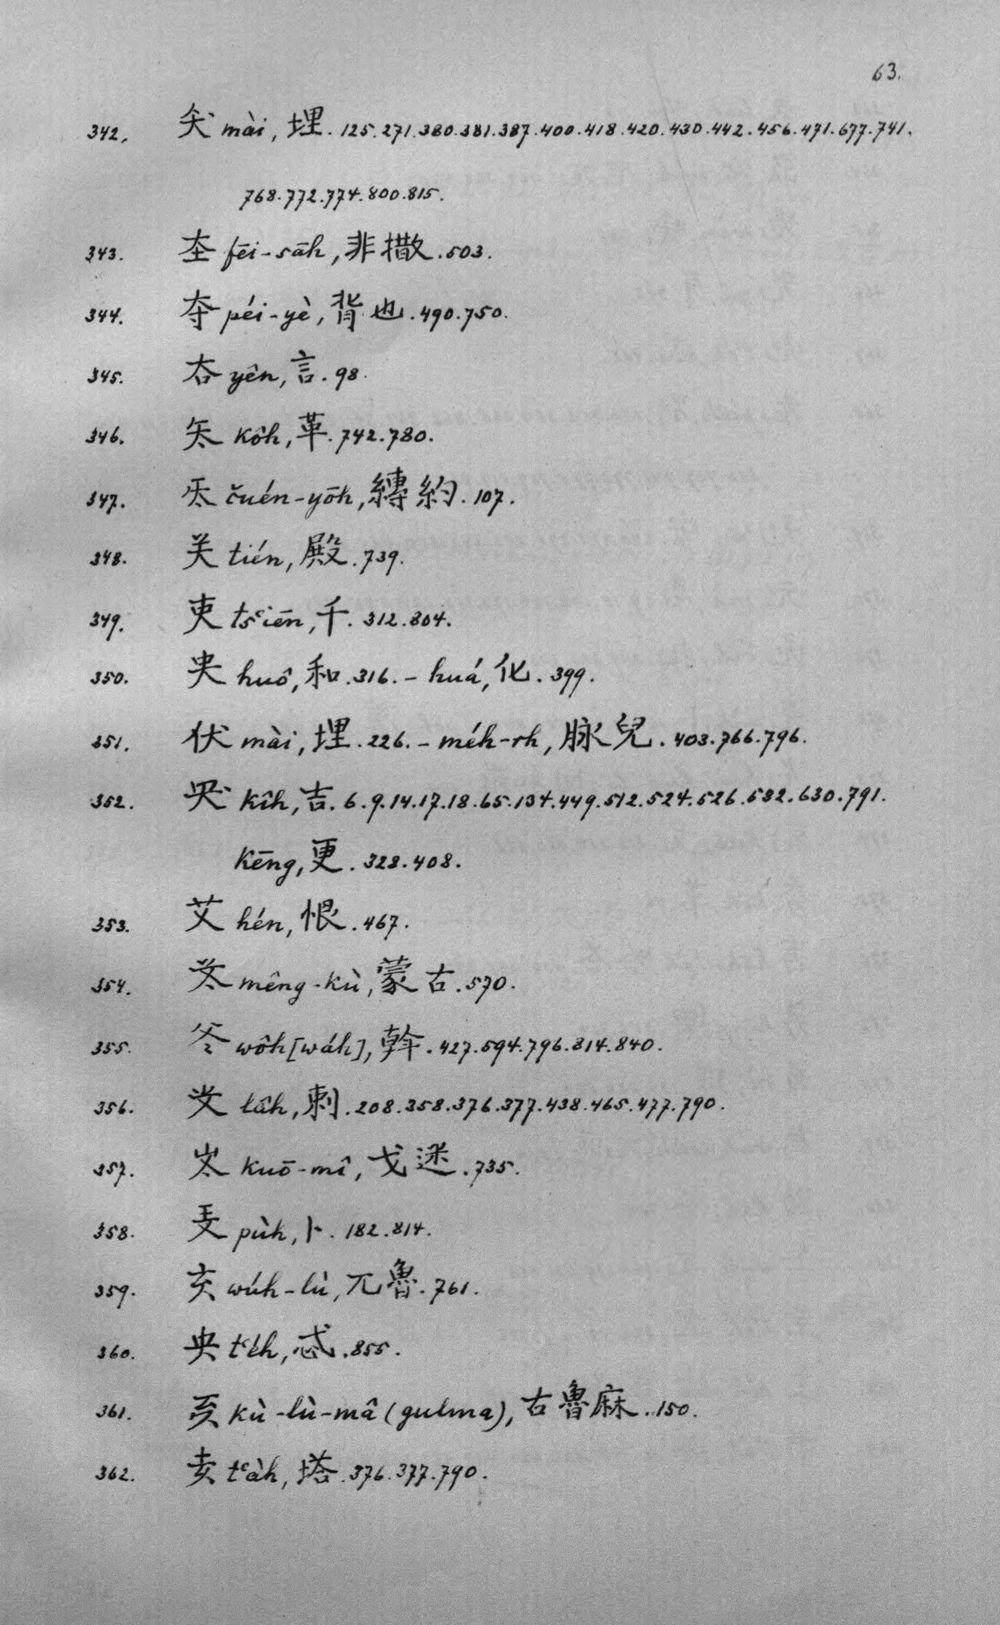 63.
342. mài, 埋. 125. 271. 380. 381. 387. 400. 418. 420. 430. 442. 456. 471. 677. 741.
768. 772. 774. 800. 815.
343. fēi-sāh, 非撒. 503.
344. péi-yè, 背也. 490. 750.
345. yên, 言. 98.
346. kôh, 革. 742. 780.
347. čuén-yōh, 縳約. 107.
348. tién, 殿. 739.
349. tsʿiēn, 千. 312. 804.
350. huô, 和. 316. – huá, 化. 399.
351. mài, 埋. 226. – méh-rh, 脉兒. 403. 766. 796.
352. kîh, 吉. 6. 9. 14. 17. 18. 65. 134. 449. 512. 524. 526. 532. 630. 791.
kēng, 更. 328. 408.
353. hén, 恨. 467.
354. mêng-kù, 蒙古. 570.
355. wôh [wáh], 斡. 427. 594. 796. 814. 840.
356. lâh, 剌. 208. 358. 376. 377. 438. 465. 477. 790.
357. kuō-mî, 戈迷. 735.
358. pùh, 卜. 182. 814.
359. wúh-lù, 兀魯. 761.
360. tʿéh, 忒. 855.
361. kù-lù-mâ (gulma), 古魯麻. 150.
362. tʿàh, 塔. 376. 377. 790.